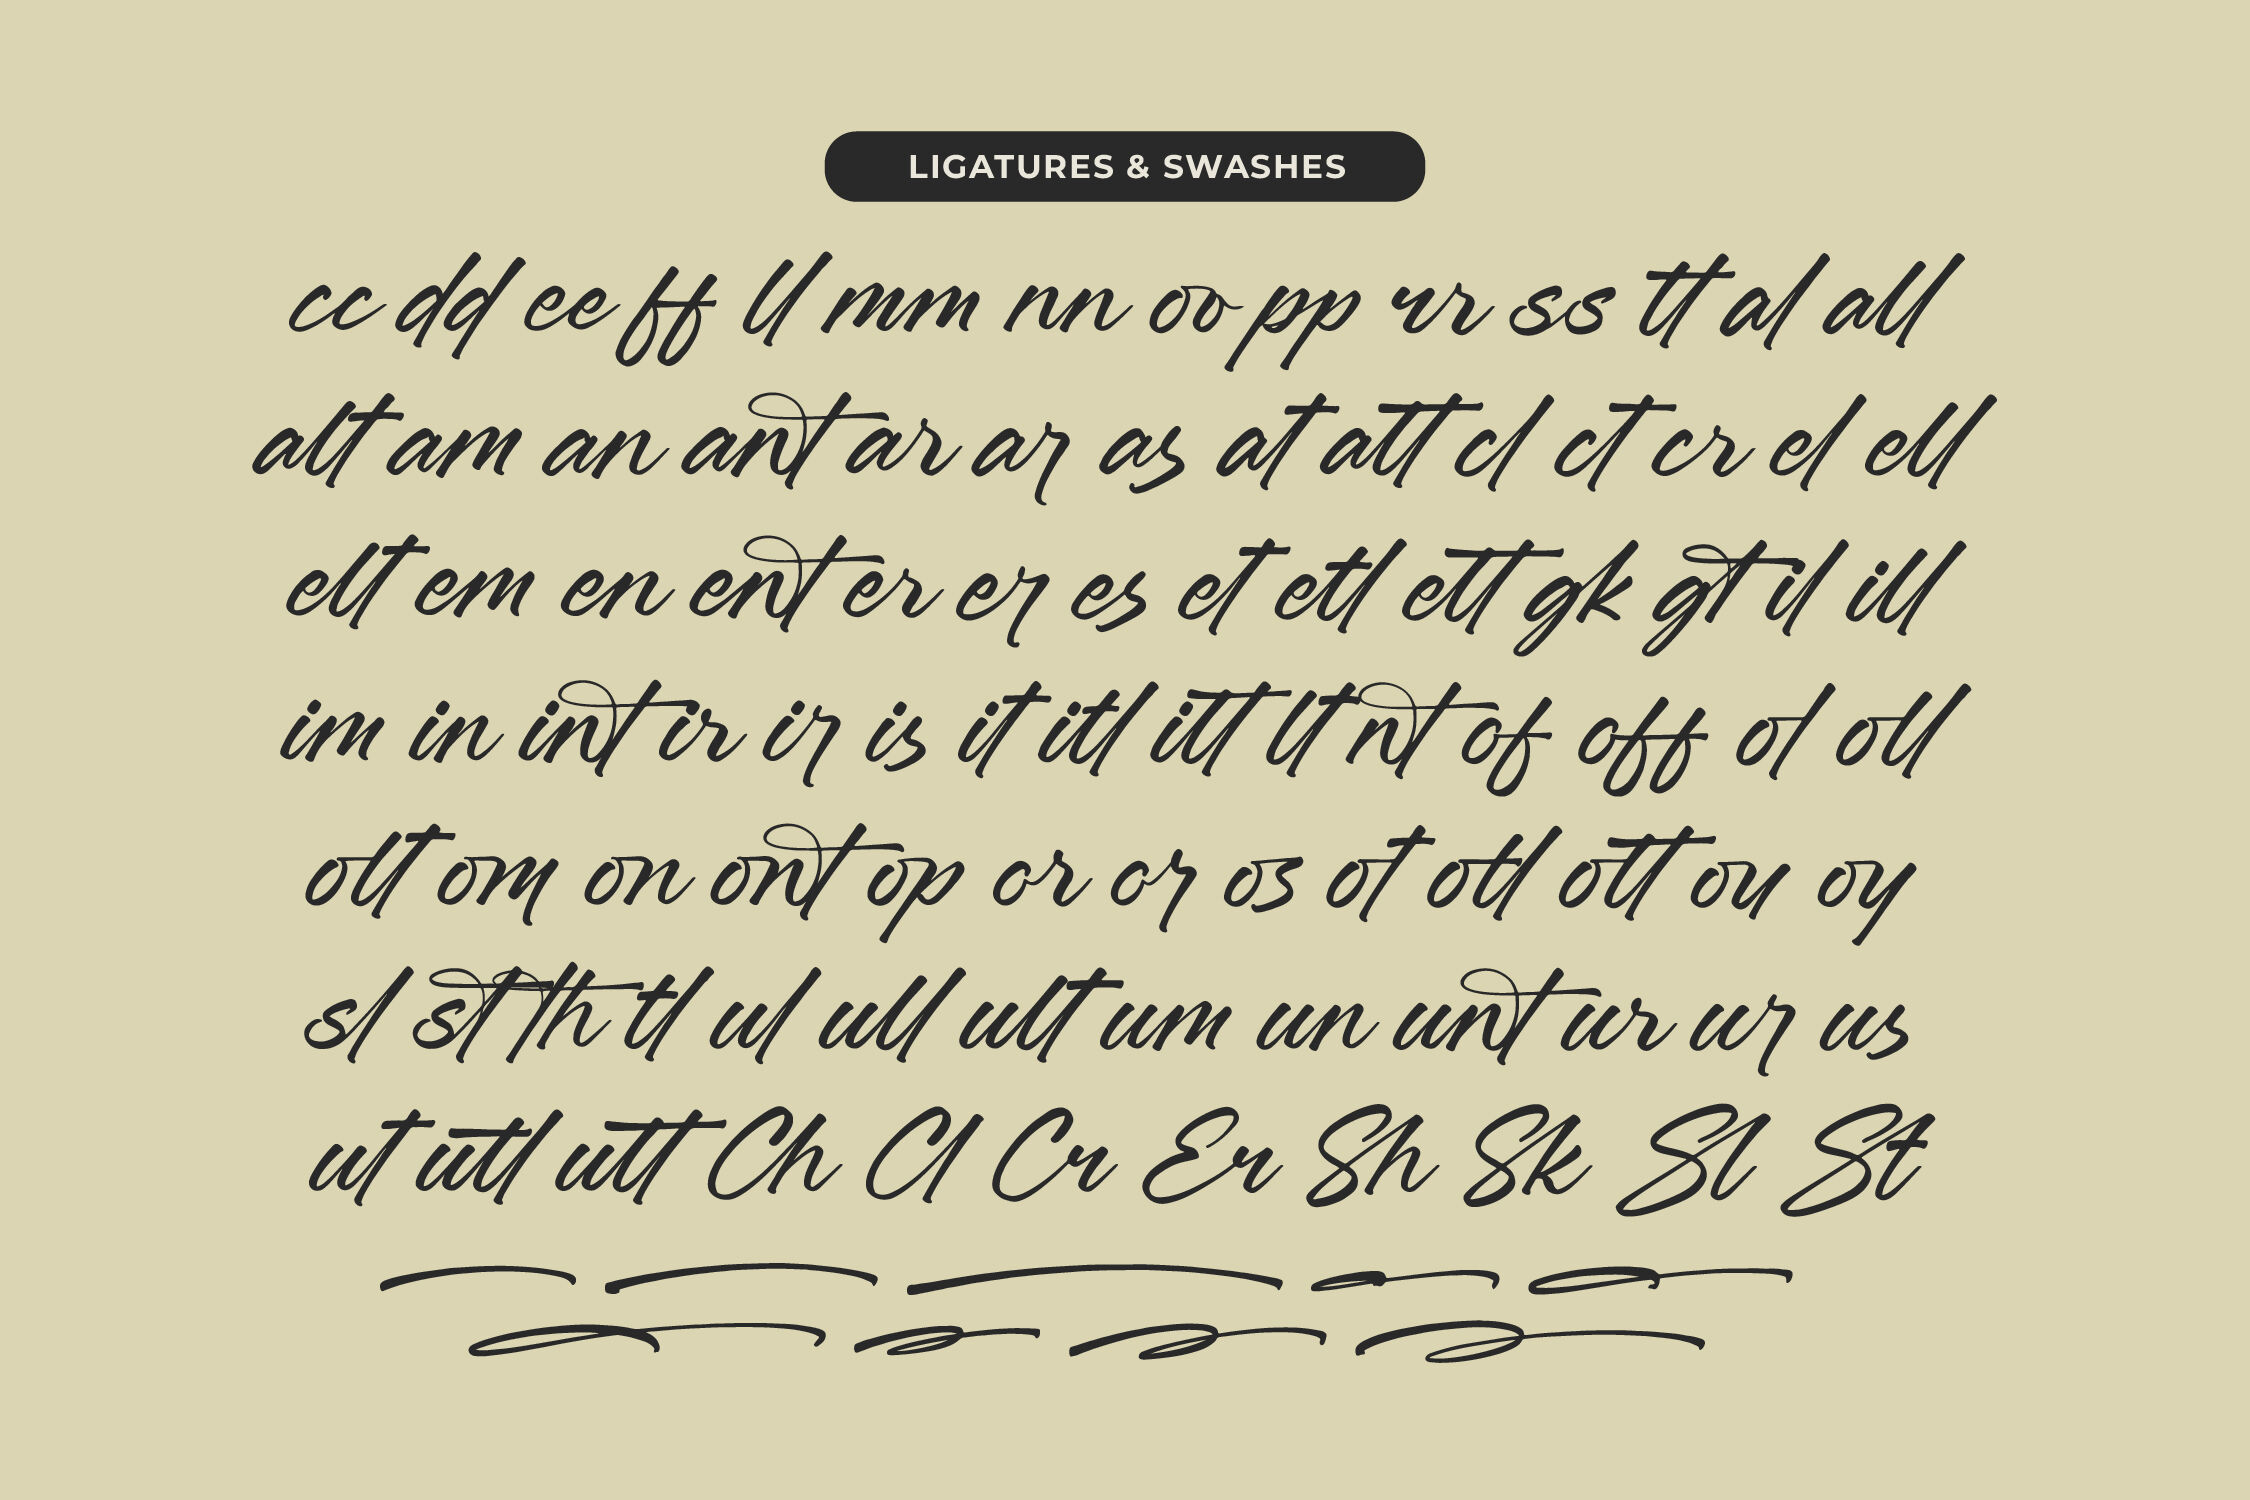 LIGATURES & SWASHES
cc dd ee ff ll mm nn oo pp rr ss tt al all
alt am an ant ar ar as at att cl ct cr el ell
elt em en ent er er es et etl ett gk gt il ill
im in int ir ir is it itl itt lt nt of off ol oll
olt om on ont op or or os ot otl ott ou oy
sl st th tl ul ull ult um un unt ur ur us
ut utl utt Ch Cl Cr Er Sh Sk Sl St